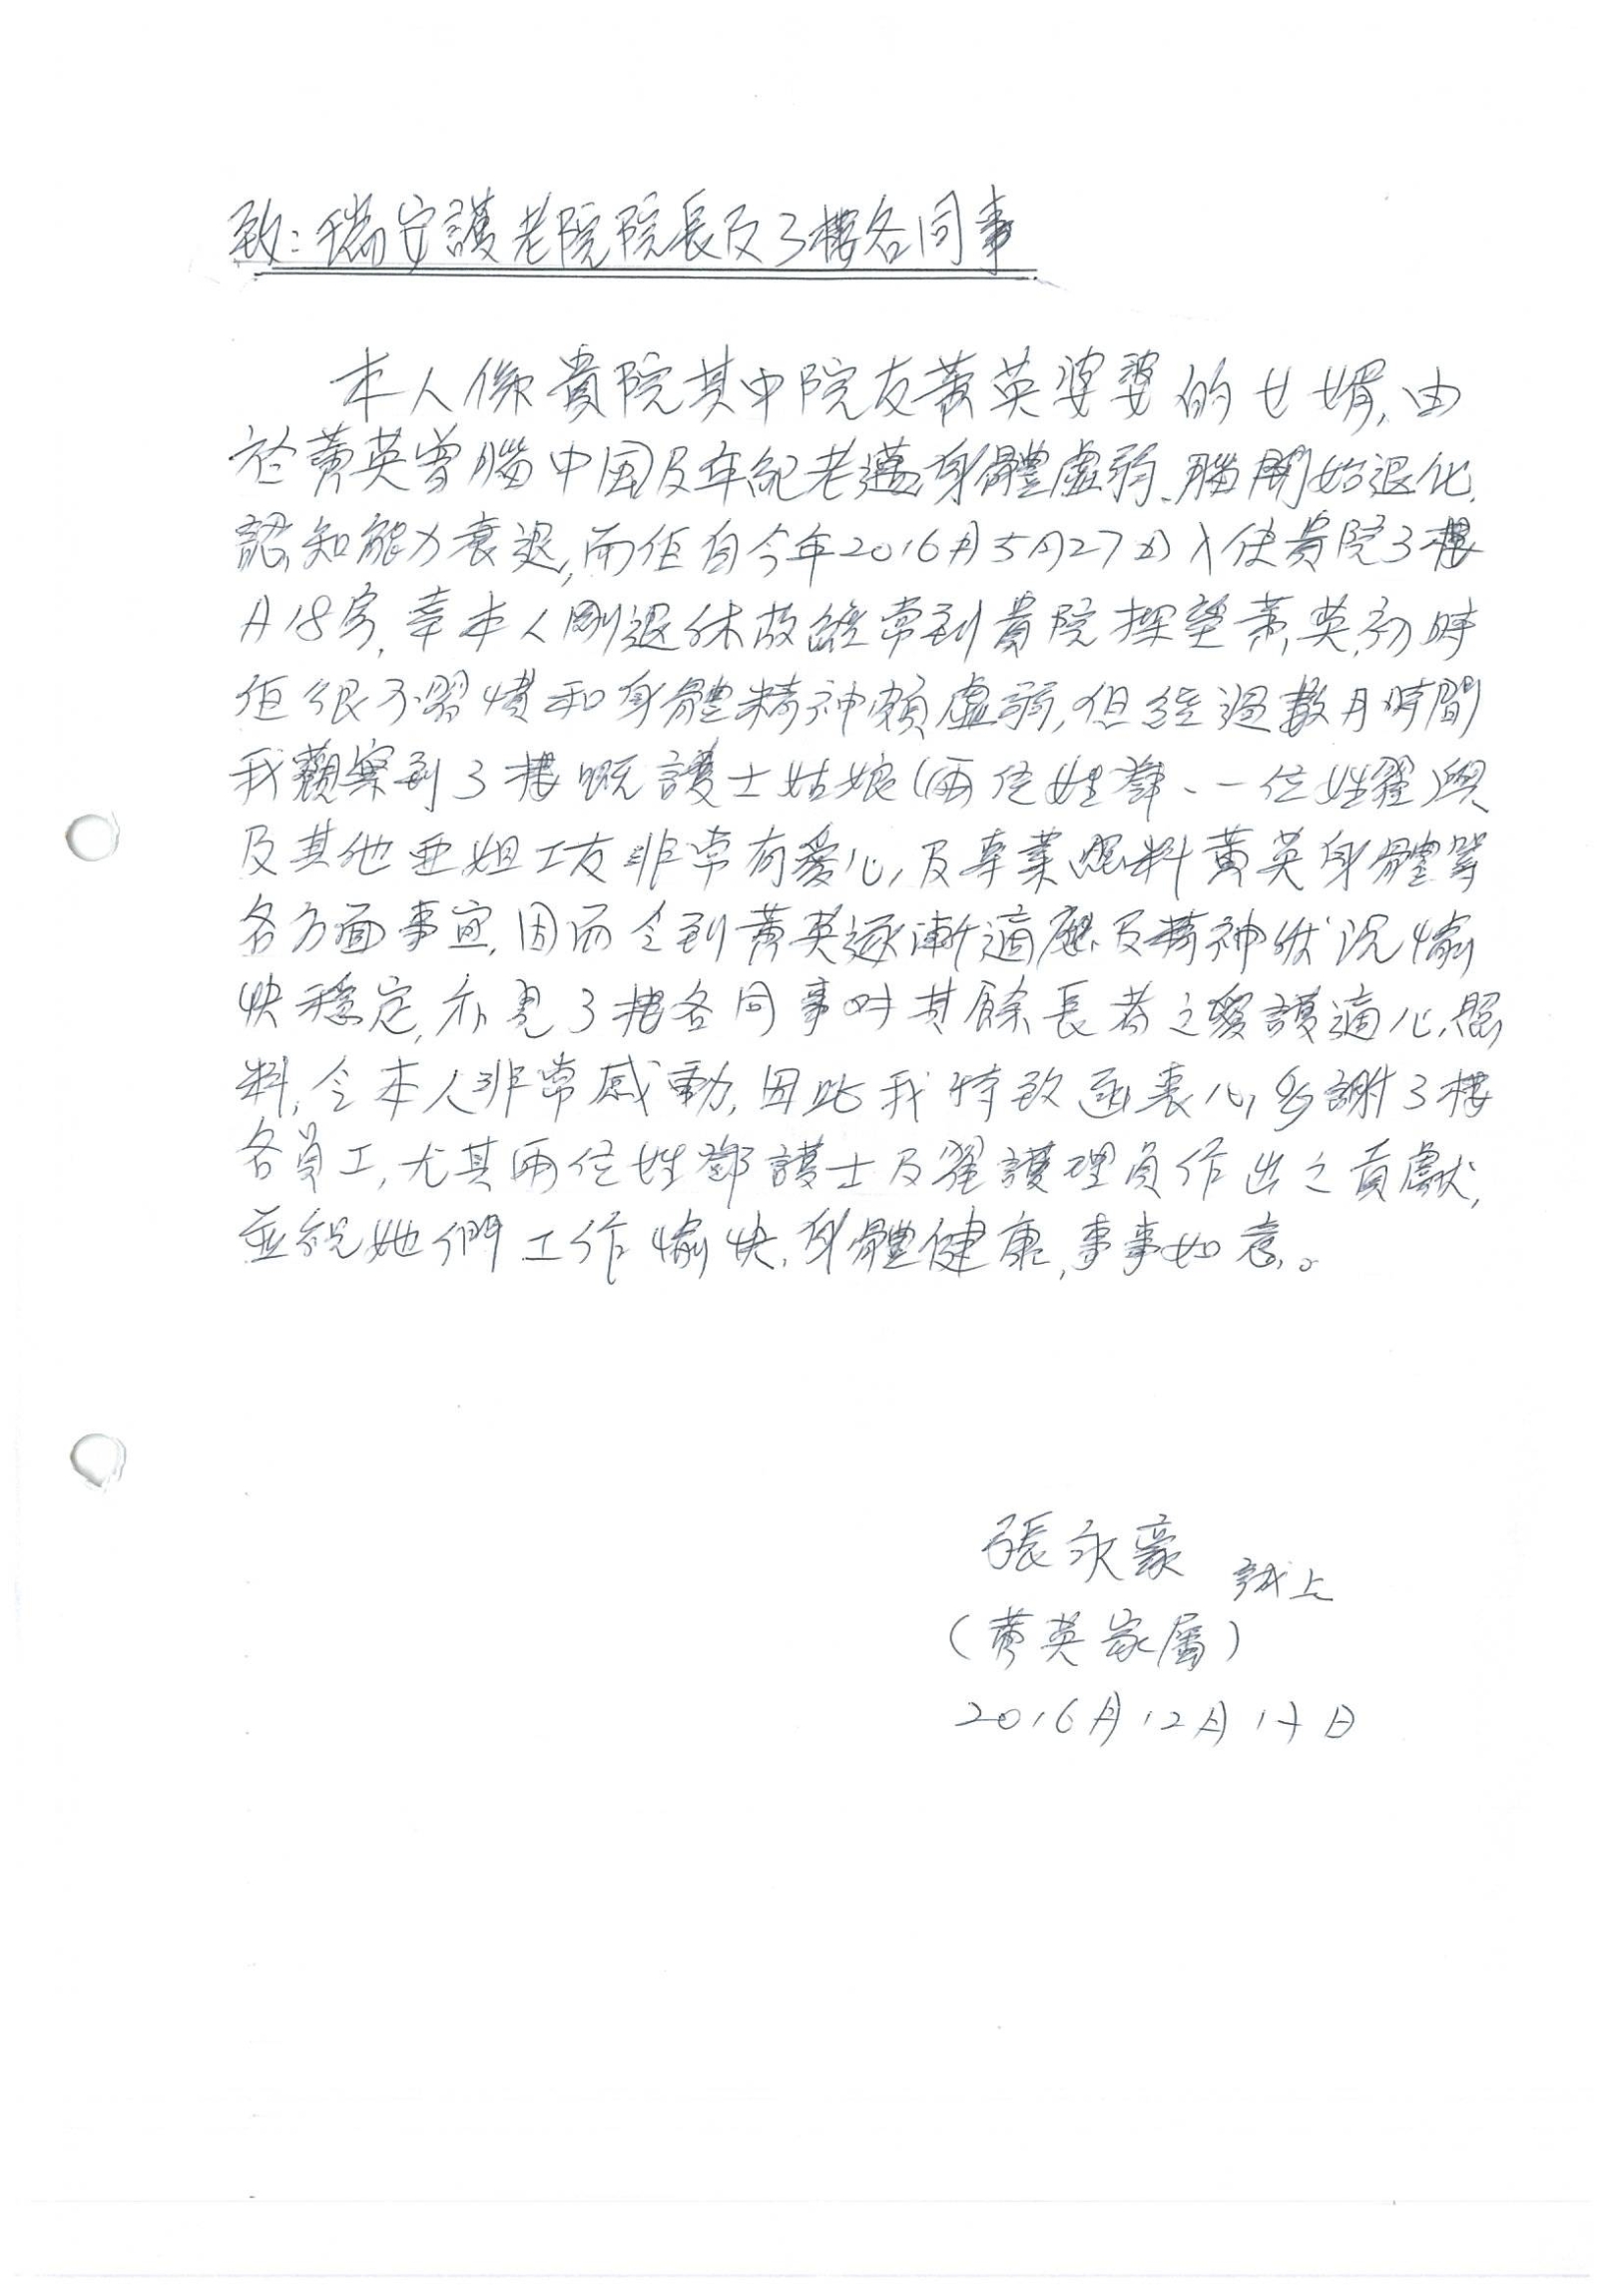 致：瑞安護老院院長及3樓各同事
本人係貴院其中院友黃英婆婆的女婿，由
於黃英曾腦中風及年紀老邁，身體虛弱、腦開始退化，
認知能力衰退，而佢自今年2016年5月27日入住貴院3樓
A18房，幸本人剛退休故經常到貴院探望黃英，初時
佢很不習慣和身體精神頗虛弱，但經過數月時間
我觀察到3樓嘅護士姑娘（兩位姓鄧、一位姓翟）與
及其他亞姐工友非常有愛心，及專業照料黃英身體等
各方面事宜，因而令到黃英逐漸適應及精神狀況愉
快穩定，亦見3樓各同事對其餘長者之愛護適心照
料，令本人非常感動，因此我特致函衷心多謝3樓
各員工，尤其兩位姓鄧護士及翟護理員作出之貢獻，
並祝她們工作愉快，身體健康，事事如意。
張永豪 誠上
（黃英家屬）
2016年12月17日